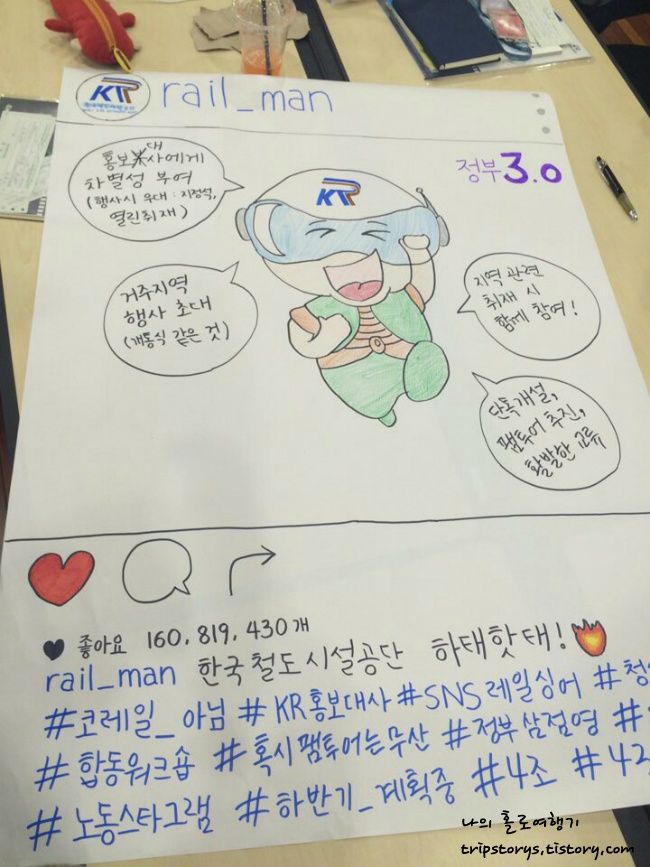 KR
rail_man
정부 3.0
대
홍보사에게
차별성 부여
(행사시 우대 : 지정석,
열린취재)
거주지역
행사 초대
(개통식 같은 것)
KR
지역 관련
취재 시
함께 참여!
단톡개설,
팸투어 추진,
활발한 교류
좋아요 160,819,430개
rail_man 한국철도시설공단 하태핫태!
#코레일_아님 #KR홍보대사 #SNS레일싱어 #청
#합동워크숍 #혹시팸투어는무산 #정부삼점영 #
#노동스타그램 #하반기_계획중 #4조 #4조
나의 홀로여행기
tripstorys.tistory.com